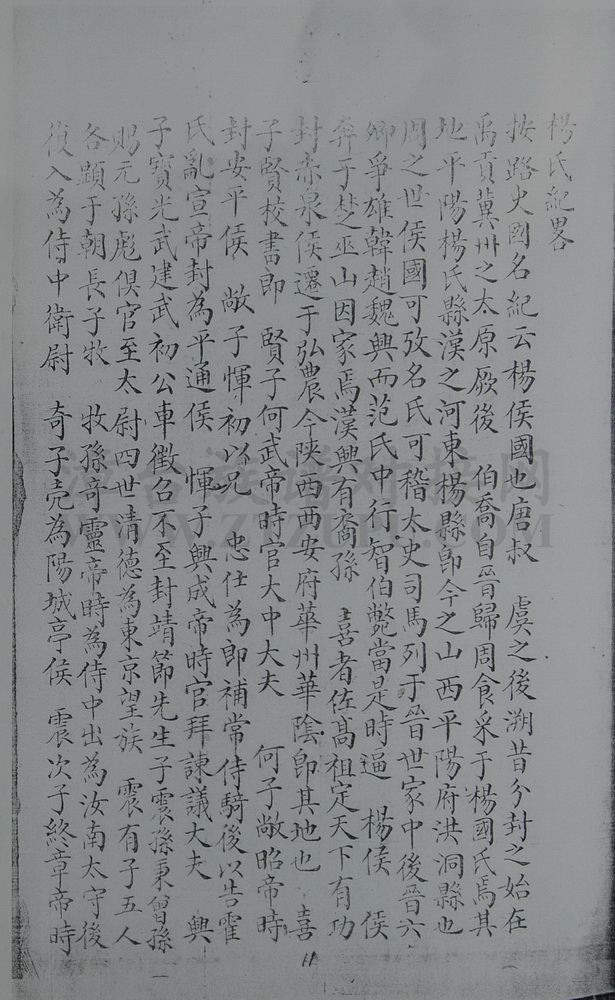 楊氏紀畧
按路史國名紀云楊侯國也唐叔 虞之後溯昔分封之始在
禹貢冀州之太原厥後 伯喬自晉歸周食采于楊國氏焉其
地平陽楊氏縣漢之河東楊縣即今之山西平陽府洪洞縣也
周之世侯國可攷名氏可稽太史司馬列于晉世家中後晉六
卿爭雄韓趙魏興而范氏中行智伯斃當是時逼 楊侯 侯
奔于楚巫山因家焉漢興有裔孫 喜者佐髙祖定天下有功
封赤泉侯遷于弘農今陝西西安府華州華陰即其地也 喜
子賢校書郎 賢子何武帝時官大中大夫 何子敞昭帝時
封安平侯 敞子惲初以兄 忠任為郎補常侍騎後以告霍
氏亂宣帝封為平通侯 惲子興成帝時官拜諫議大夫 興
子寶光武建武初公車徵召不至封靖節先生子震孫秉曾孫
賜元孫彪俱官至太尉四世清德為東京望族 震有子五人
各顯于朝長子牧 牧孫奇靈帝時為侍中出為汝南太守後
復入為侍中衛尉 奇子亮為陽城亭侯 震次子終章帝時
11